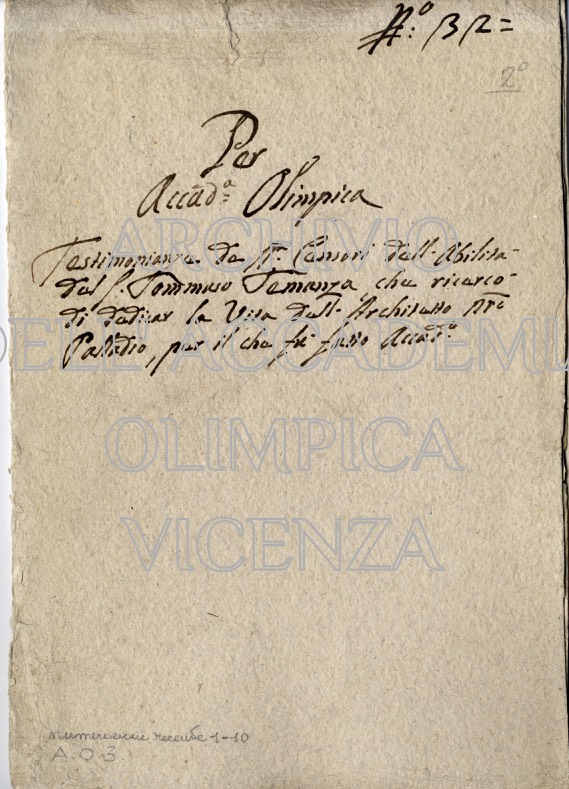 N.º 32=
2º
Per
Accad.ª Olimpica
Testimonianza de N.ri Censori dell'Abilità
del S. Tommaso Temanza che ricercò
di dedicar la Vita dell'Architetto Nrô
Palladio, per il che fù fatto Accad.º
ARCHIVIO
DELL'ACCADEMIA
OLIMPICA
VICENZA
numerazione recente 1-10
A.O.3